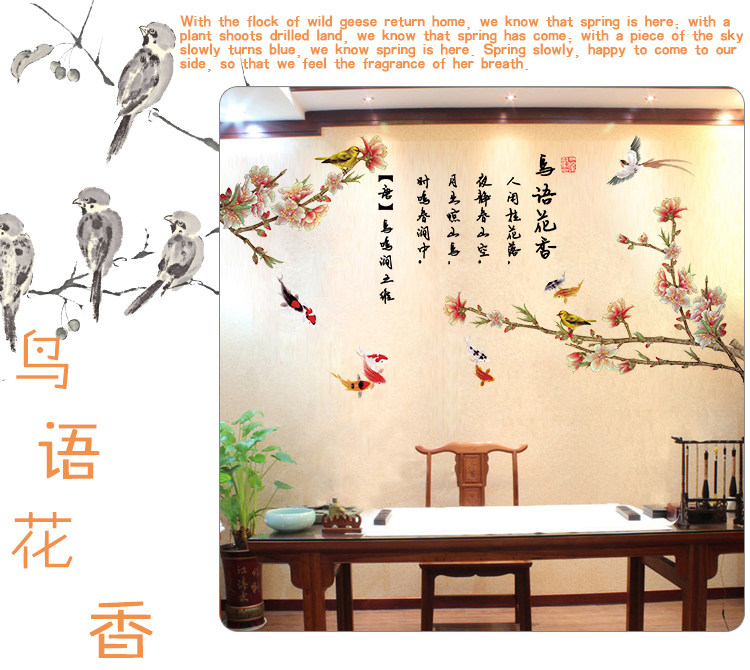 With the flock of wild geese return home, we know that spring is here; with a
plant shoots drilled land, we know that spring has come; with a piece of the sky
slowly turns blue, we know spring is here. Spring slowly, happy to come to our
side, so that we feel the fragrance of her breath.
鸟语花香
鸟语花香
人闲桂花落,
夜静春山空.
月出惊山鸟,
时鸣春涧中.
【唐】鸟鸣涧王维